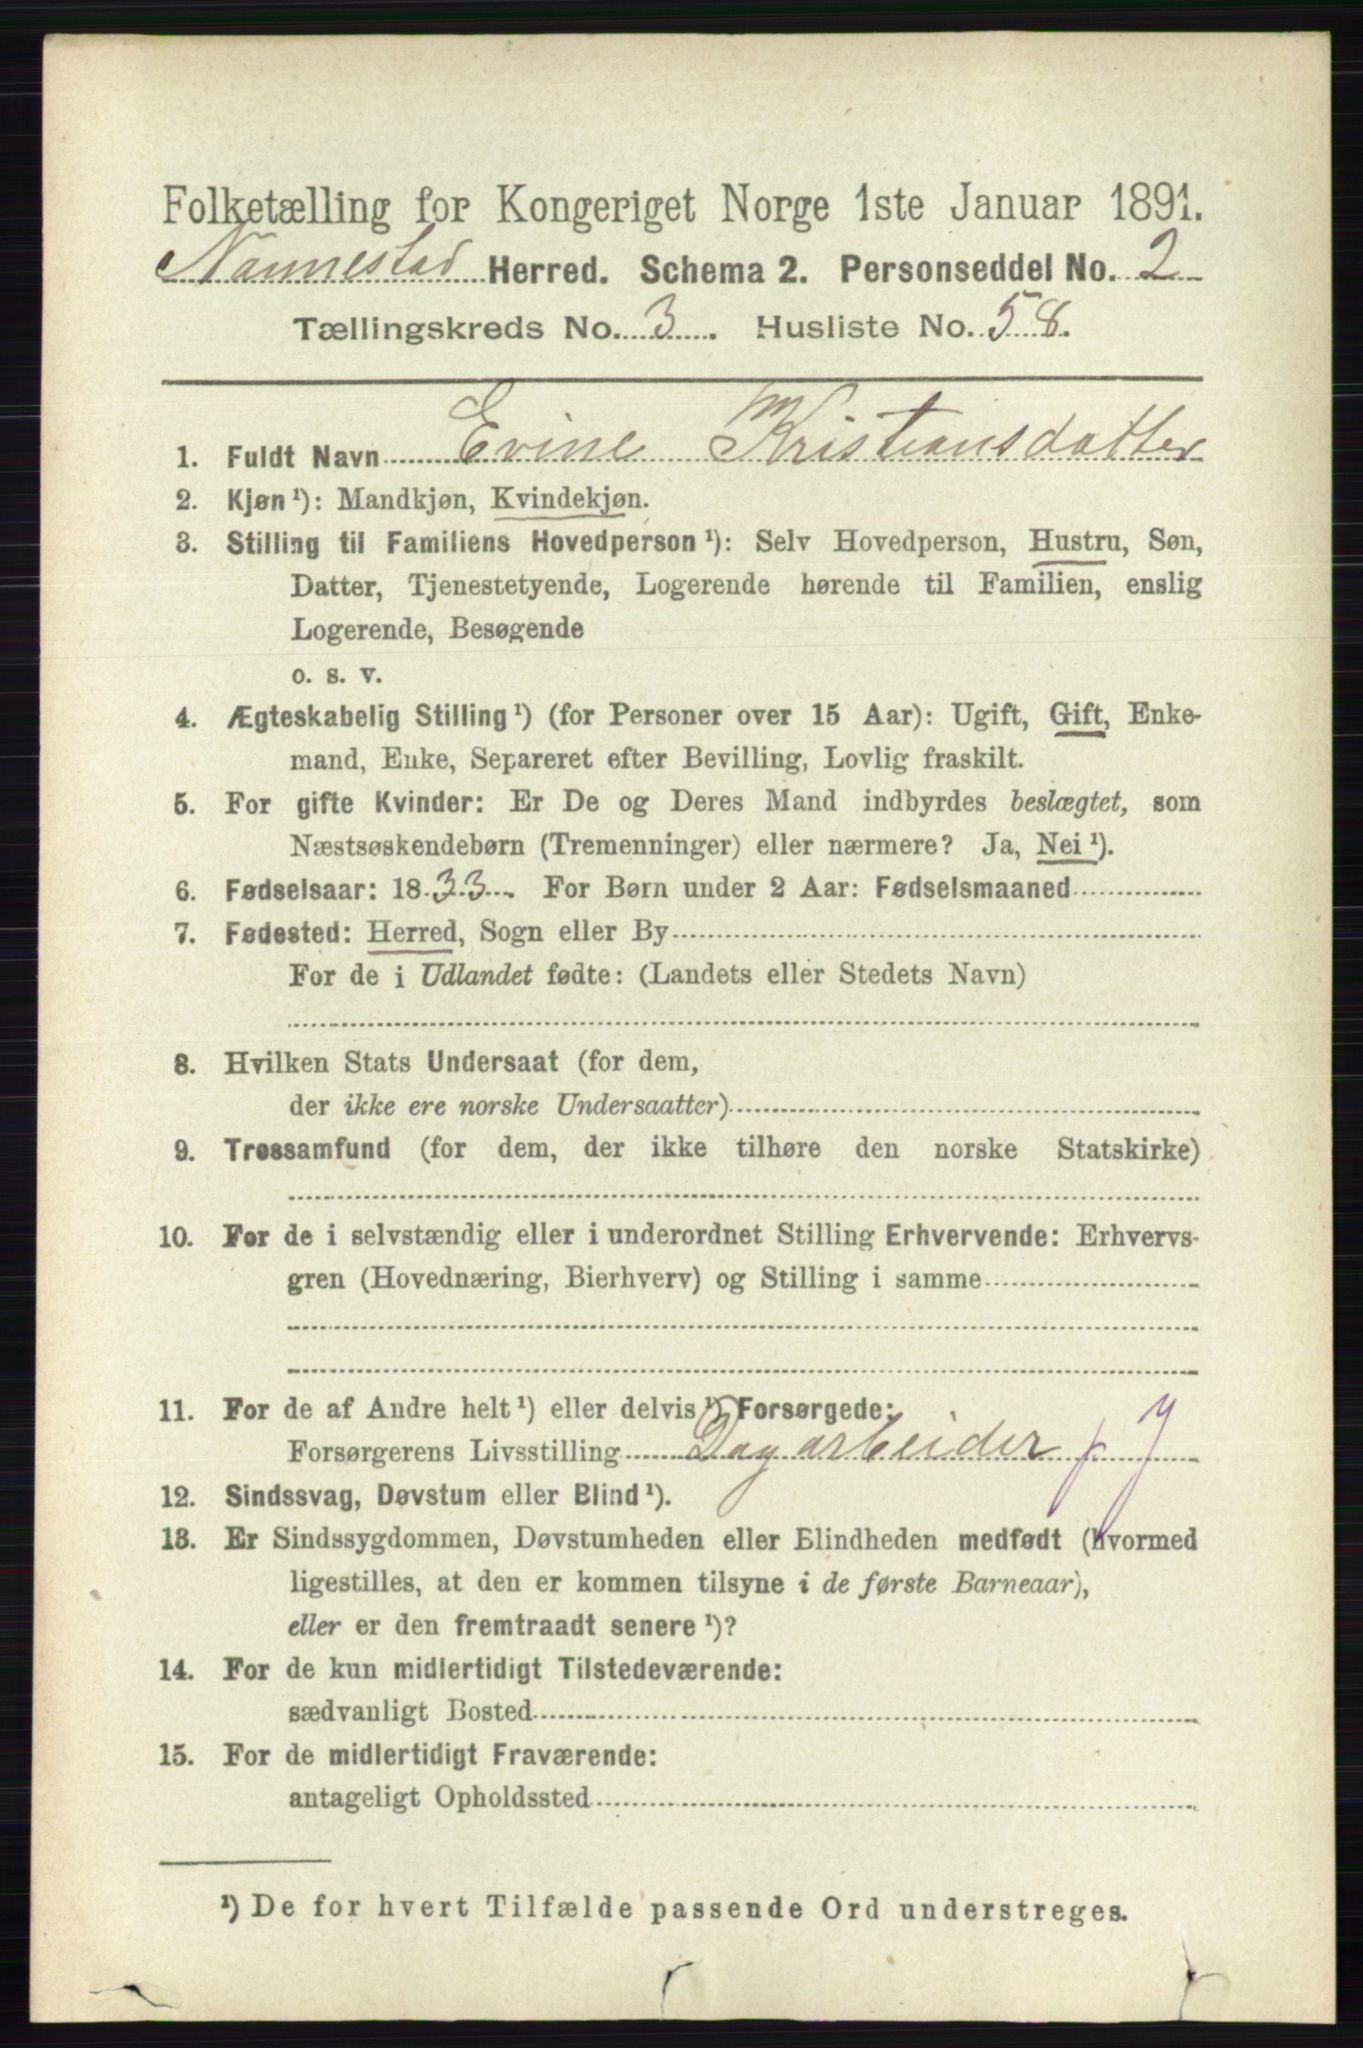 Folketælling for Kongeriget Norge 1ste Januar 1891.
Nannestad Herred. Schema 2. Personseddel No. 2
Tællingskreds No. 3. Husliste No. 58.
1. Fuldt Navn Evine Kristiansdatter
2. Kjøn¹): Mandkjøn, Kvindekjøn.
3. Stilling til Familiens Hovedperson¹): Selv Hovedperson, Hustru, Søn,
Datter, Tjenestetyende, Logerende hørende til Familien, enslig
Logerende, Besøgende
o. s. v.
4. Ægteskabelig Stilling¹) (for Personer over 15 Aar): Ugift, Gift, Enke-
mand, Enke, Separeret efter Bevilling, Lovlig fraskilt.
5. For gifte Kvinder: Er De og Deres Mand indbyrdes beslægtet, som
Næstsøskendebørn (Tremenninger) eller nærmere? Ja, Nei¹).
6. Fødselsaar: 1833. For Børn under 2 Aar: Fødselsmaaned
7. Fødested: Herred, Sogn eller By
For de i Udlandet fødte: (Landets eller Stedets Navn)
8. Hvilken Stats Undersaat (for dem,
der ikke ere norske Undersaatter)
9. Trossamfund (for dem, der ikke tilhøre den norske Statskirke)
10. For de i selvstændig eller i underordnet Stilling Erhvervende: Erhvervs-
gren (Hovednæring, Bierhverv) og Stilling i samme
11. For de af Andre helt¹) eller delvis¹) Forsørgede:
Forsørgerens Livsstilling Dagarbeider p. J
12. Sindssvag, Døvstum eller Blind¹).
13. Er Sindssygdommen, Døvstumheden eller Blindheden medfødt (hvormed
ligestilles, at den er kommen tilsyne i de første Barneaar),
eller er den fremtraadt senere¹)?
14. For de kun midlertidigt Tilstedeværende:
sædvanligt Bosted
15. For de midlertidigt Fraværende:
antageligt Opholdssted
¹) De for hvert Tilfælde passende Ord understreges.